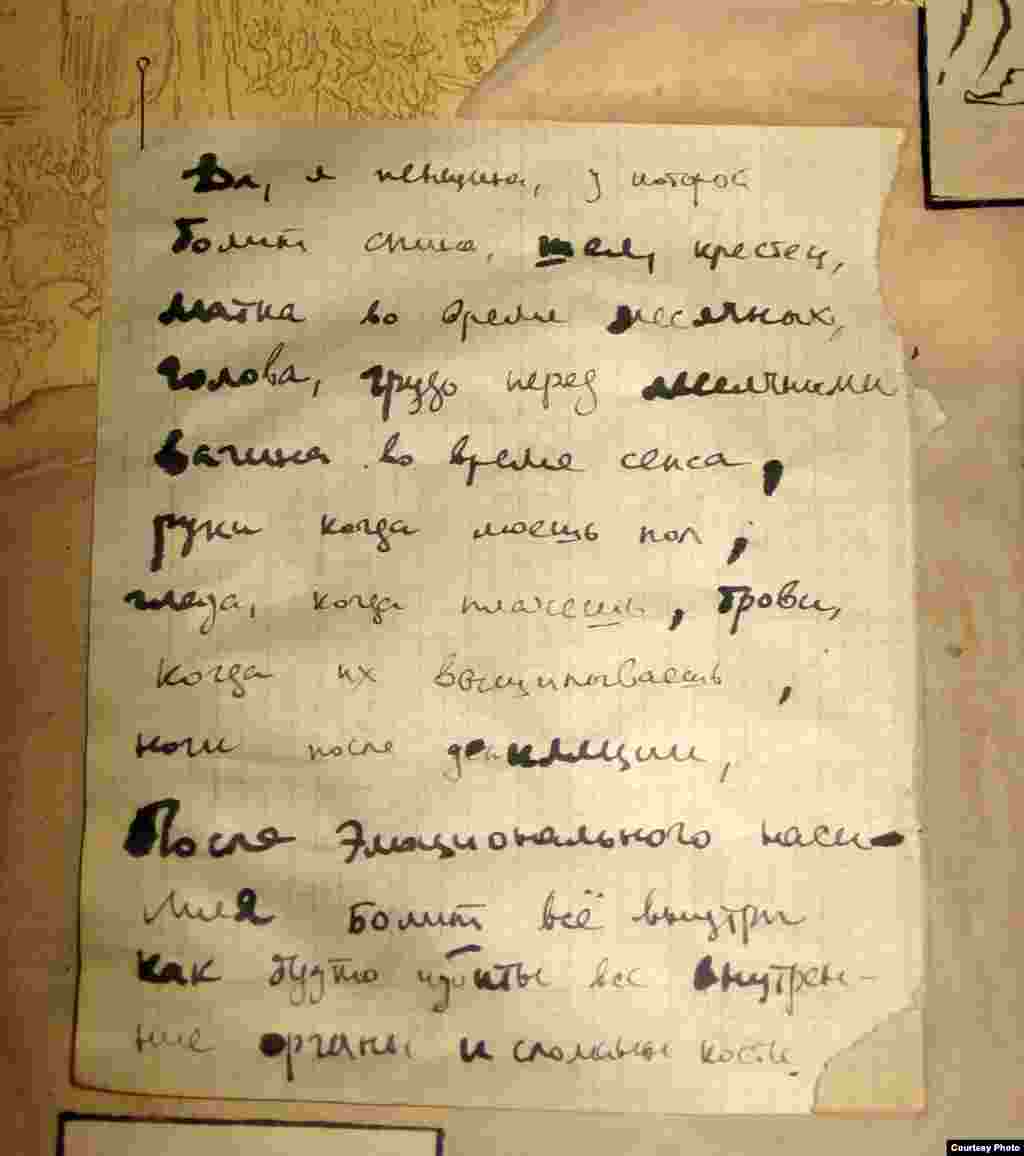 Да, я женщина, у которой
болит спина, шея, крестец,
матка во время месячных,
голова, грудь перед месячными
вагина во время секса,
руки когда моешь пол,
глаза, когда плачешь, брови,
когда их выщипываешь,
ноги после депиляции,
После эмоционального наси-
лия болит всё внутри
как будто избиты все внутрен-
ние органы и сломаны кости.
Courtesy Photo